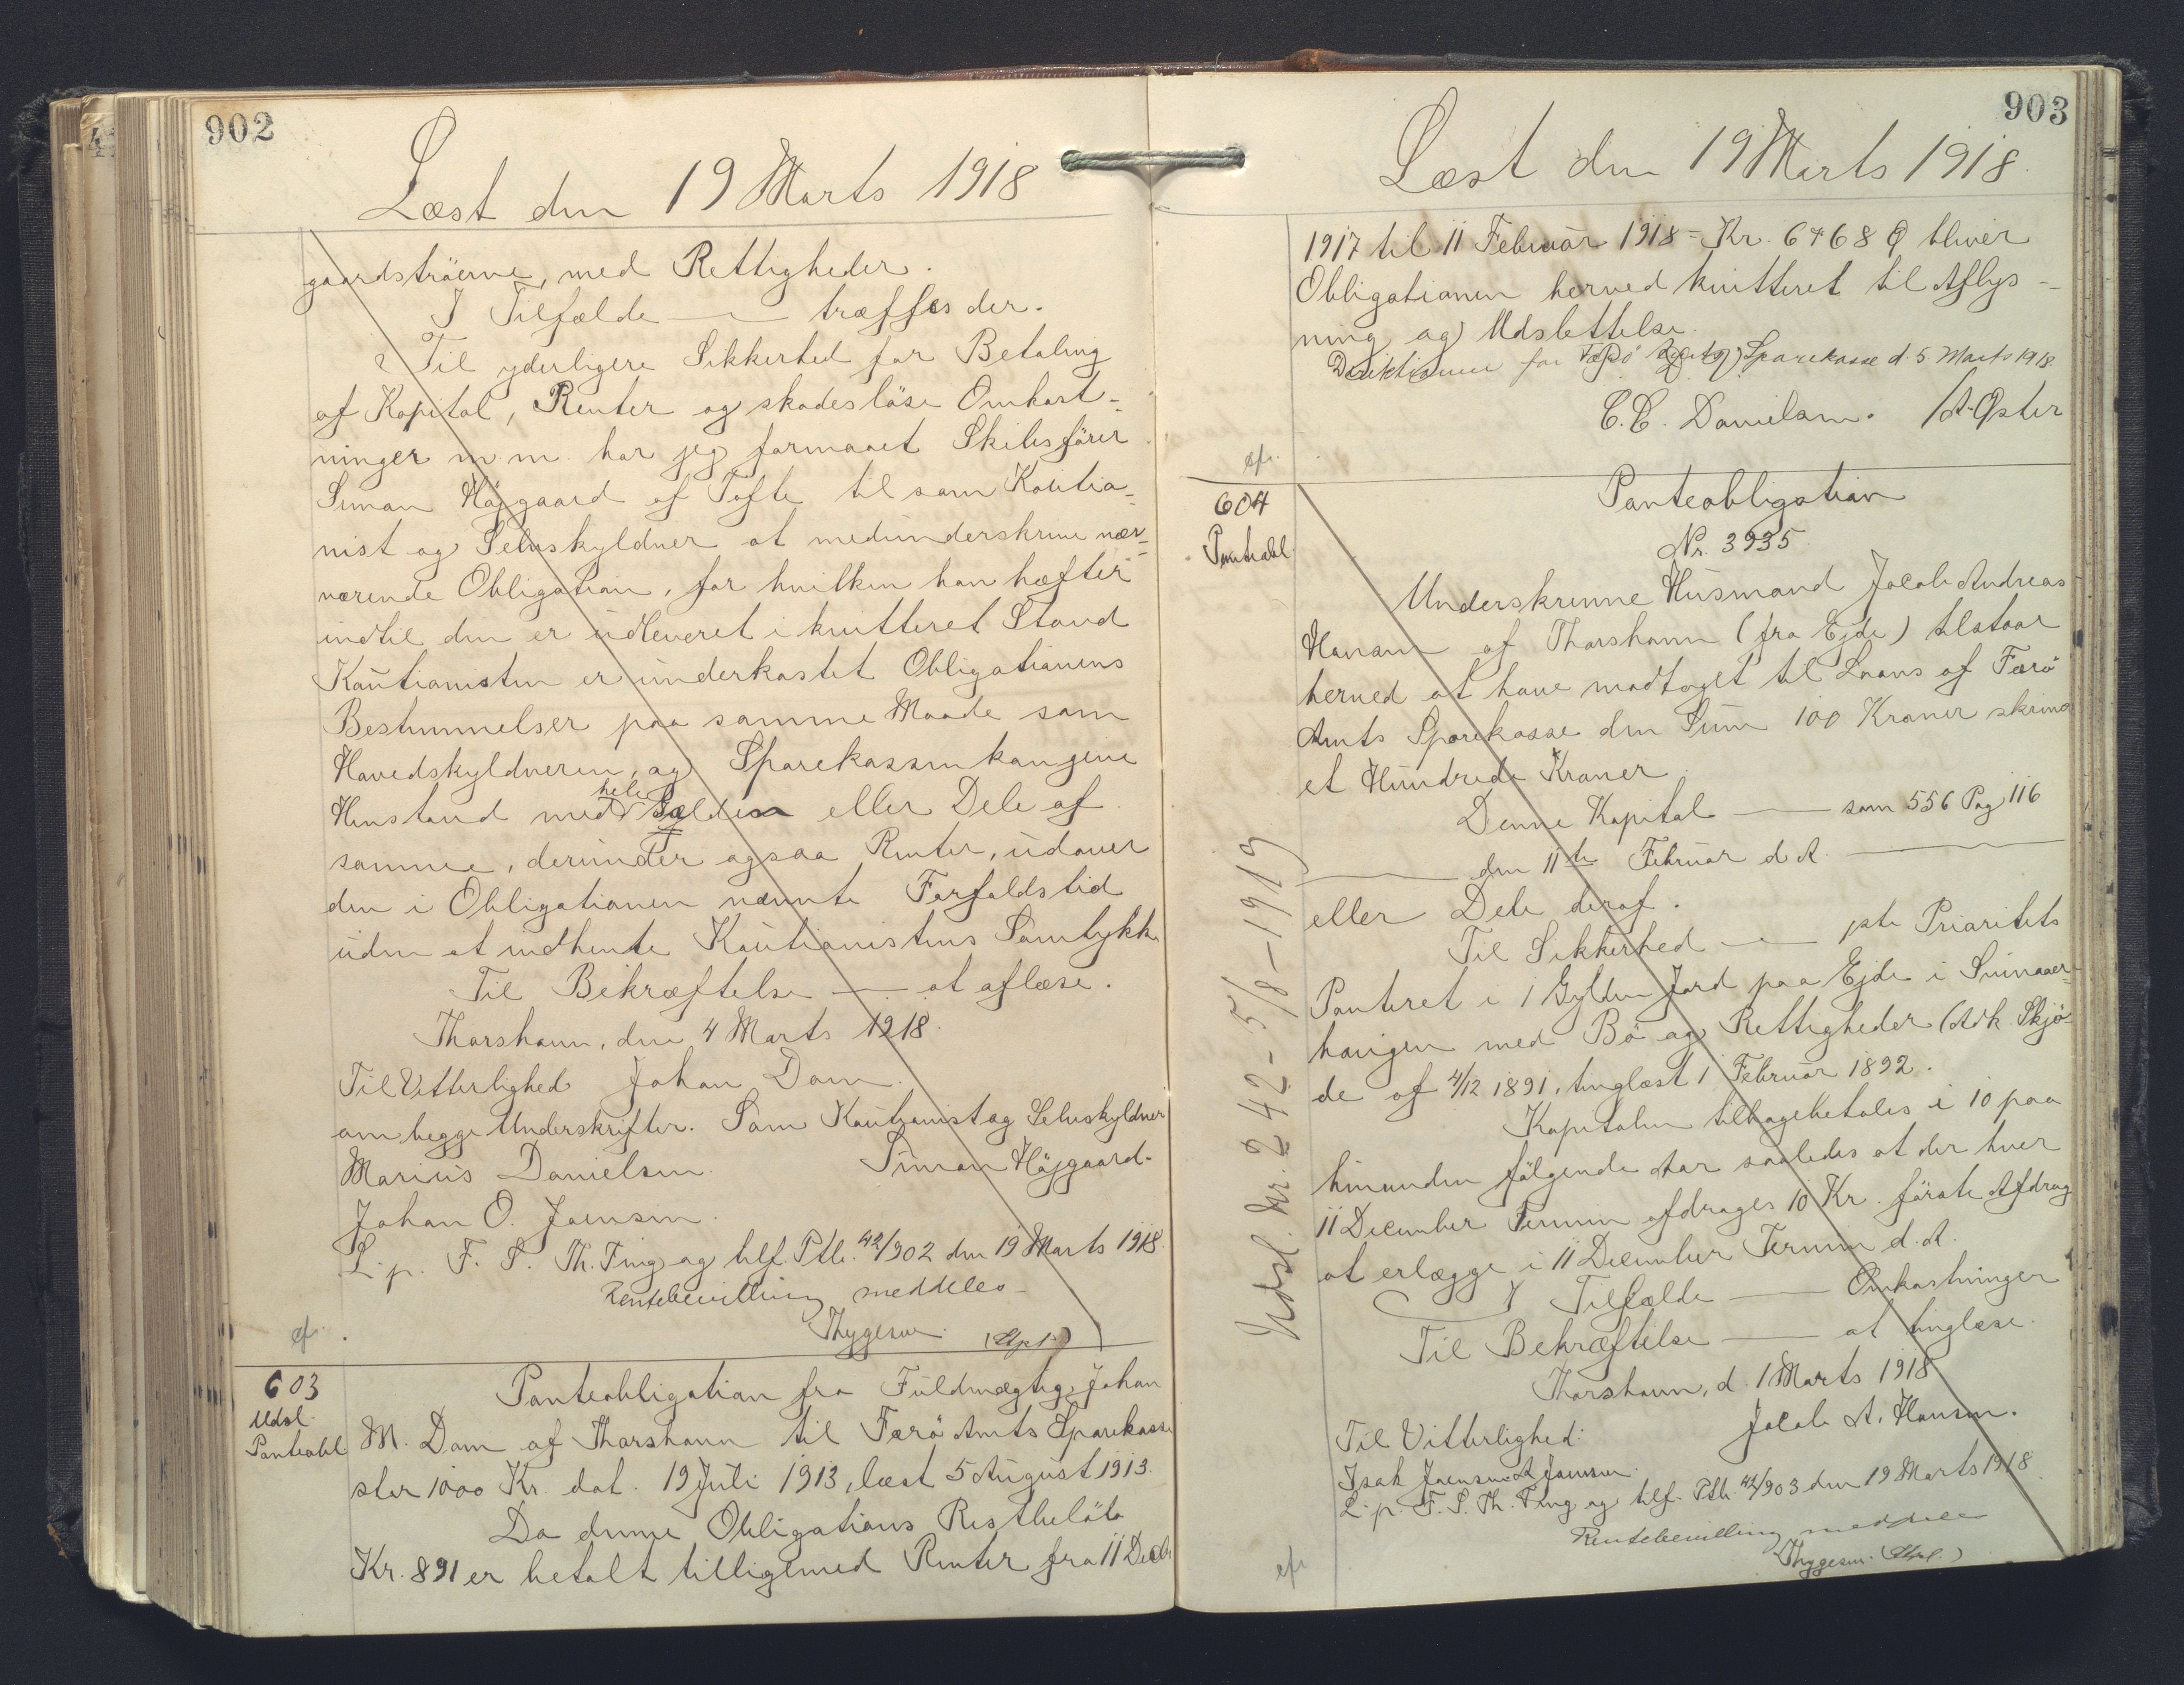 902
Læst den 19 Marts 1918
gaardströerne, med Rettigheder.
I Tilfælde — træffes der.
Til yderligere Sikkerhed for Betaling
af Kapital, Renter og skadesløse Omkost-
ninger m.m. har jeg formaaet Skibsfører
Simon Højgaard af Tofte til som Kautio-
nist og Selvskyldner at medunderskrive nær-
værende Obligation, for hvilken han hæfter
indtil den er udleveret i kvitteret Stand
Kautionisten er underkastet Obligationens
Bestemmelser paa samme Maade som
Hovedskyldneren, og Sparekassen kan give
Henstand med hele Gælden eller Dele af
samme, derunder ogsaa Renter, udover
den i Obligationen nævnte Forfaldstid
uden at indhente Kautionistens Samtykke
Til Bekræftelse — at aflæse.
Thorshavn, den 4 Marts 1918.
Til Vitterlighed Johan Dam.
om begge Underskrifter. Som Kautionist og Selvskyldner
Marius Danielsen. Simon Højgaard.
Johan O. Joensen.
L. p. F. S. Th. Ting og tilf. Ptb. 42/902 den 19 Marts 1918.
Rentebevilling meddeles
Thygesen (Stpl.)
cf.
603
Udsl.
Panteobl
Panteobligation fra Fuldmægtig Johan
M. Dam af Thorshavn til Færö Amts Sparekasse
stor 1000 Kr. dat. 19 Juli 1913, læst 5 August 1913.
Da denne Obligations Restbeløb
Kr. 891 er betalt tilligemed Renter fra 11 Decbr
903
Læst den 19 Marts 1918.
1917 til 11 Februar 1918 = Kr. 6 + 68 Ø bliver
Obligationen herved kvitteret til Aflys-
ning og Udslettelse.
Direktionen for Færö Amts Sparekasse d. 5 Marts 1918.
C. C. Danielsen. /A. Øster
cf.
604
Panteobl.
Panteobligation
Nr. 3935
Underskrevne Husmand Jacob Andreas
Hansen af Thorshavn (fra Ejde) tilstaar
herved at have modtaget til Laans af Færö
Amts Sparekasse den Sum 100 Kroner skriver
et Hundrede Kroner
Denne Kapital — som 556 Pag 116
— den 11te Februar d. A. —
eller Dele deraf.
Til Sikkerhed — pte Prioritets
Panteret i 1 Gylden Jord paa Ejde i
haugen med Bø og Rettigheder (Adk. Skjö-
de af 4/12 1891, tinglæst 1 Februar 1892.
Kapitalen tilbagebetales i 10 paa
hinanden følgende Aar saaledes at der hver
11 December Termin afdrages 10 Kr. første Afdrag
at erlægge i 11 December Termin d. A.
I Tilfælde — Omkostninger
Til Bekræftelse — at tinglæse.
Thorshavn, d. 1 Marts 1918
Til Vitterlighed: Jacob A. Hansen.
Isak Joensen. A Joensen.
L. p. F. S. Th. Ting og tilf. Ptb. 42/903 den 19 Marts 1918
Rentebevilling meddeles
Thygesen. (Stpl.)
cf.
Udsl. Nr. 242 - 5/8 - 1919